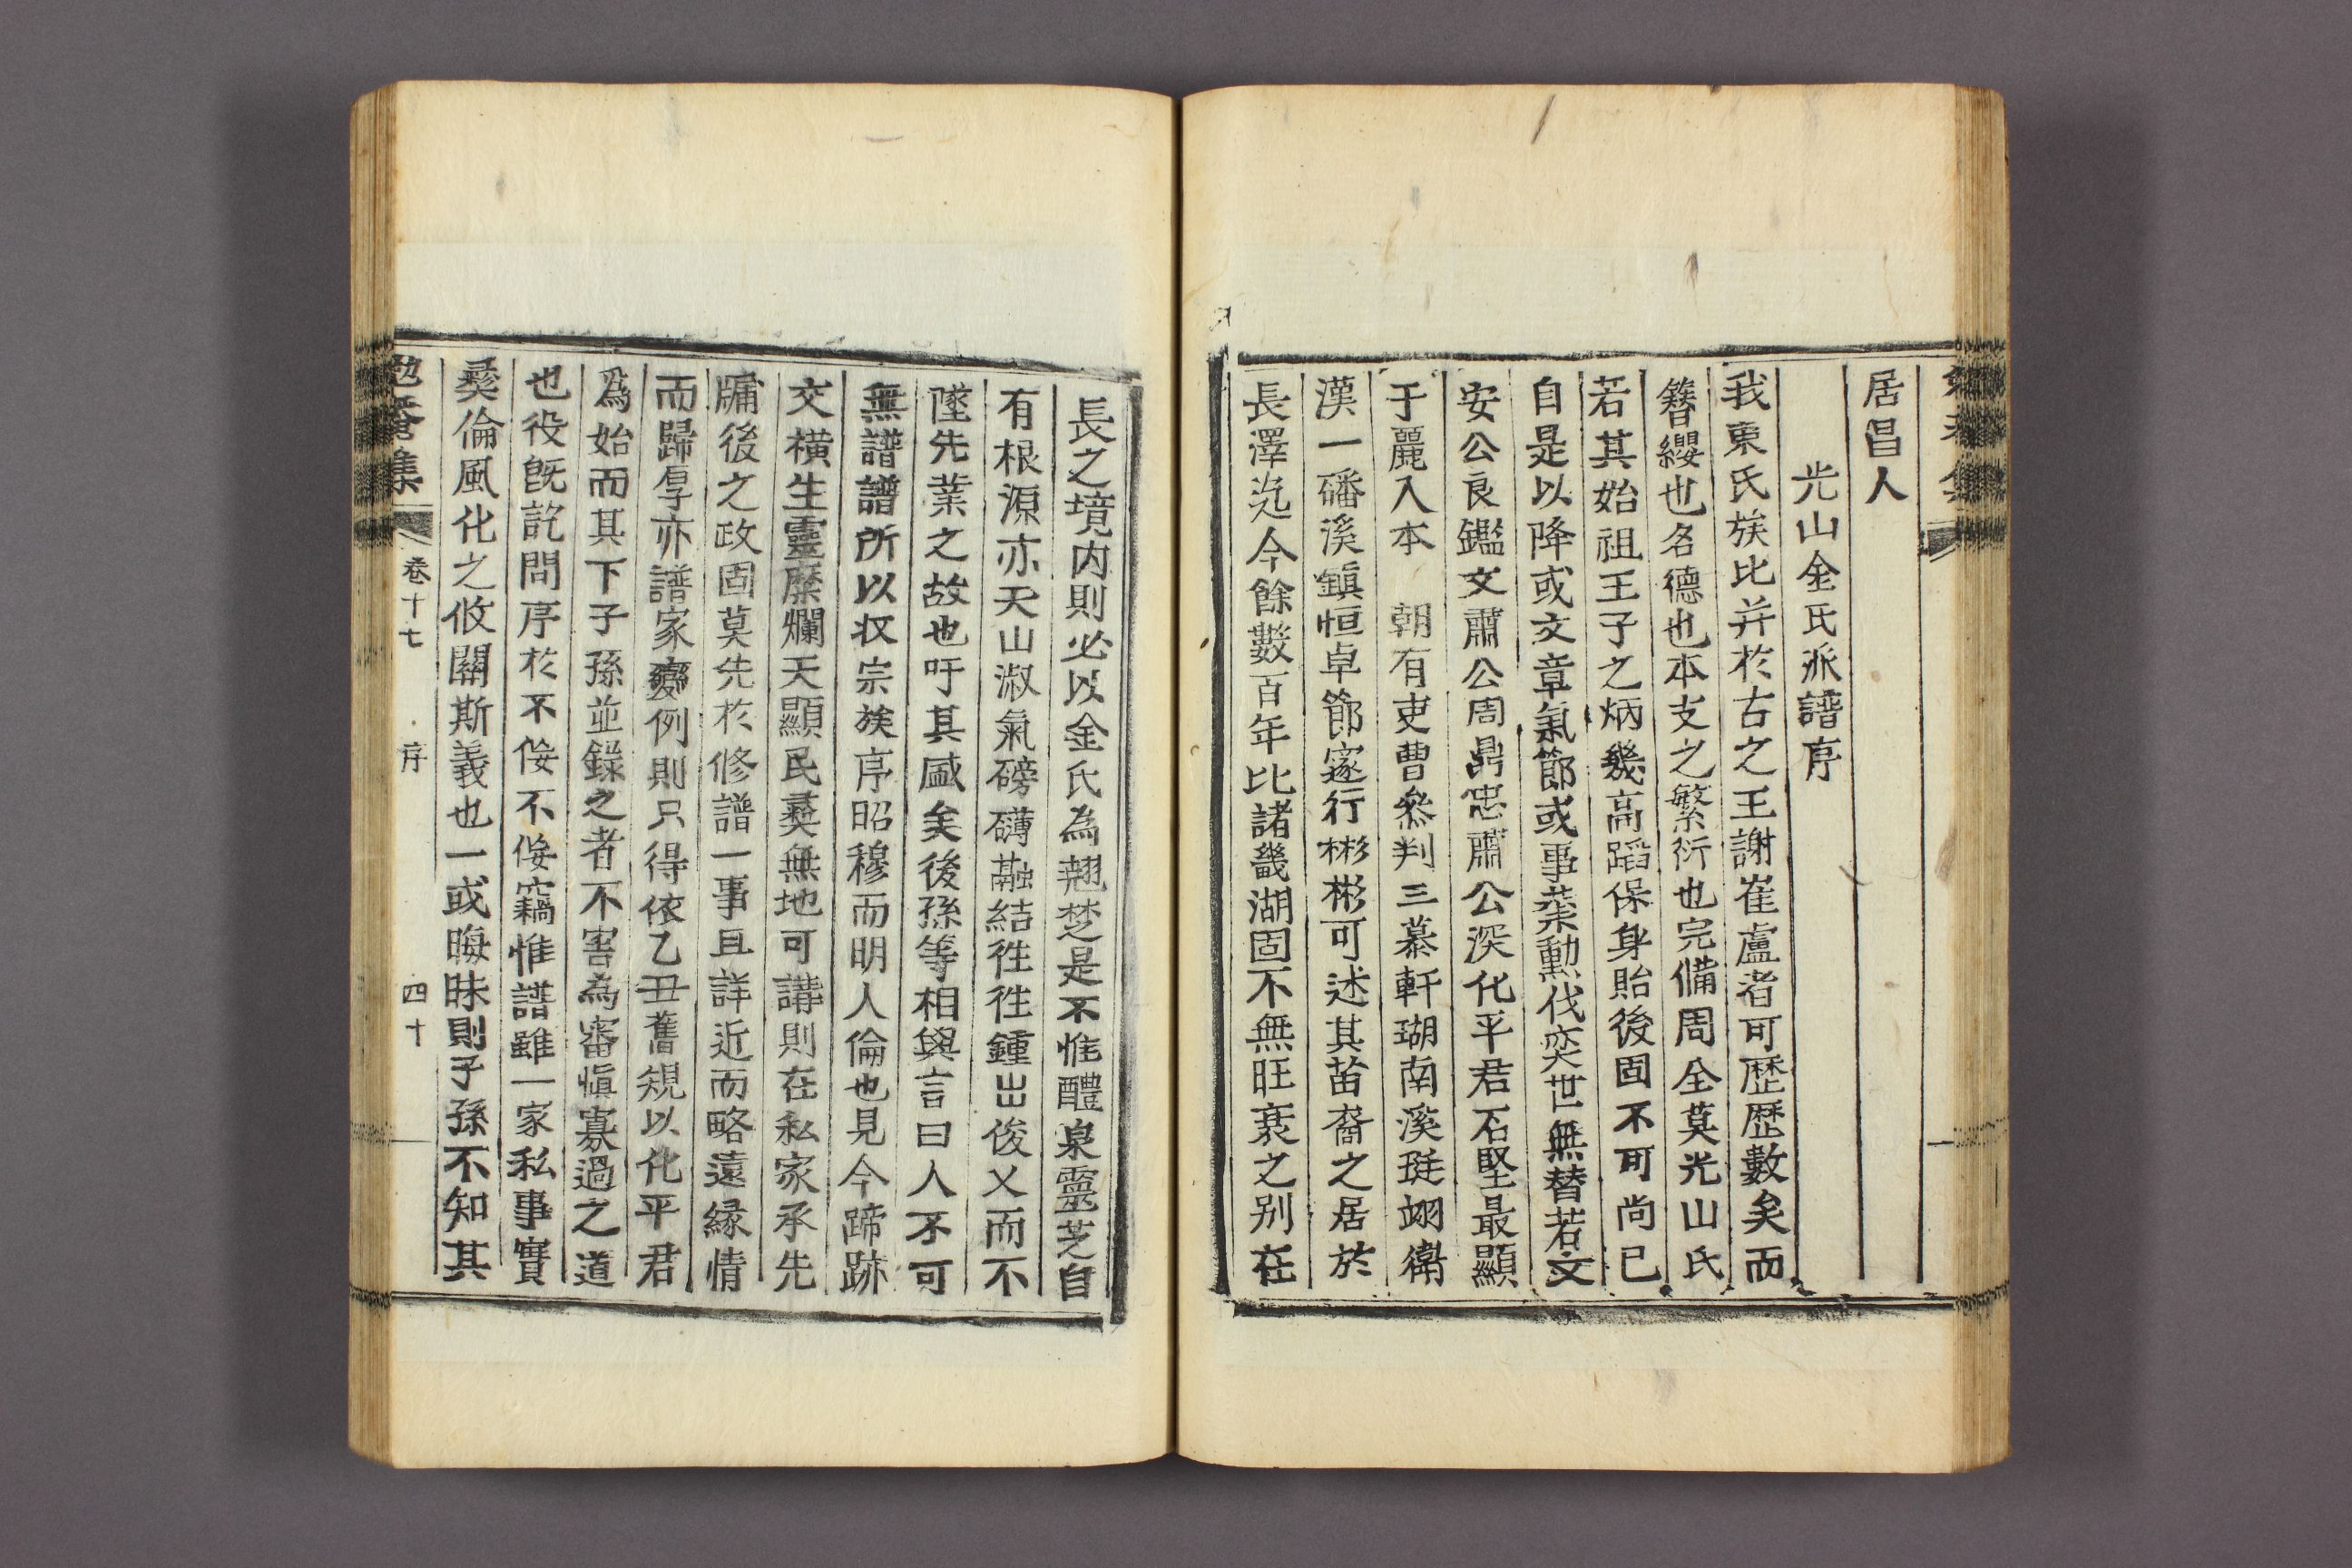 居昌人
光山金氏派譜序
我東氏族比并於古之王謝崔盧者可歷歷數矣而
簪纓也名德也本支之繁衍也完備周全莫光山氏
若其始祖王子之炳幾高蹈保身貽後固不可尚已
自是以降或文章氣節或事業勳伐奕世無替若文
安公良鑑文肅公周鼎忠肅公深化平君石堅最顯
于麗入本　朝有吏曹參判三慕軒瑚南溪珽翊衛
漢一磻溪鎭恒卓節邃行彬彬可述其苗裔之居於
長澤迄今餘數百年比諸畿湖固不無旺衰之别在
長之境内則必以金氏為翹楚是不惟醴泉靈芝自
有根源亦天山淑氣磅礴融結徃徃鍾出俊乂而不
墜先業之故也吁其盛矣後孫等相與言曰人不可
無譜譜所以収宗族序昭穆而明人倫也見今蹄跡
交横生靈糜爛天顯民彛無地可講則在私家承先
牖後之政固莫先於修譜一事且詳近而略遠緣情
而歸厚亦譜家變例則只得依乙丑舊規以化平君
爲始而其下子孫並錄之者不害為審愼寡過之道
也役旣訖問序於不佞不佞竊惟譜雖一家私事實
彛倫風化之攸關斯義也一或晦昧則子孫不知其
勉菴集　卷十七　序　四十